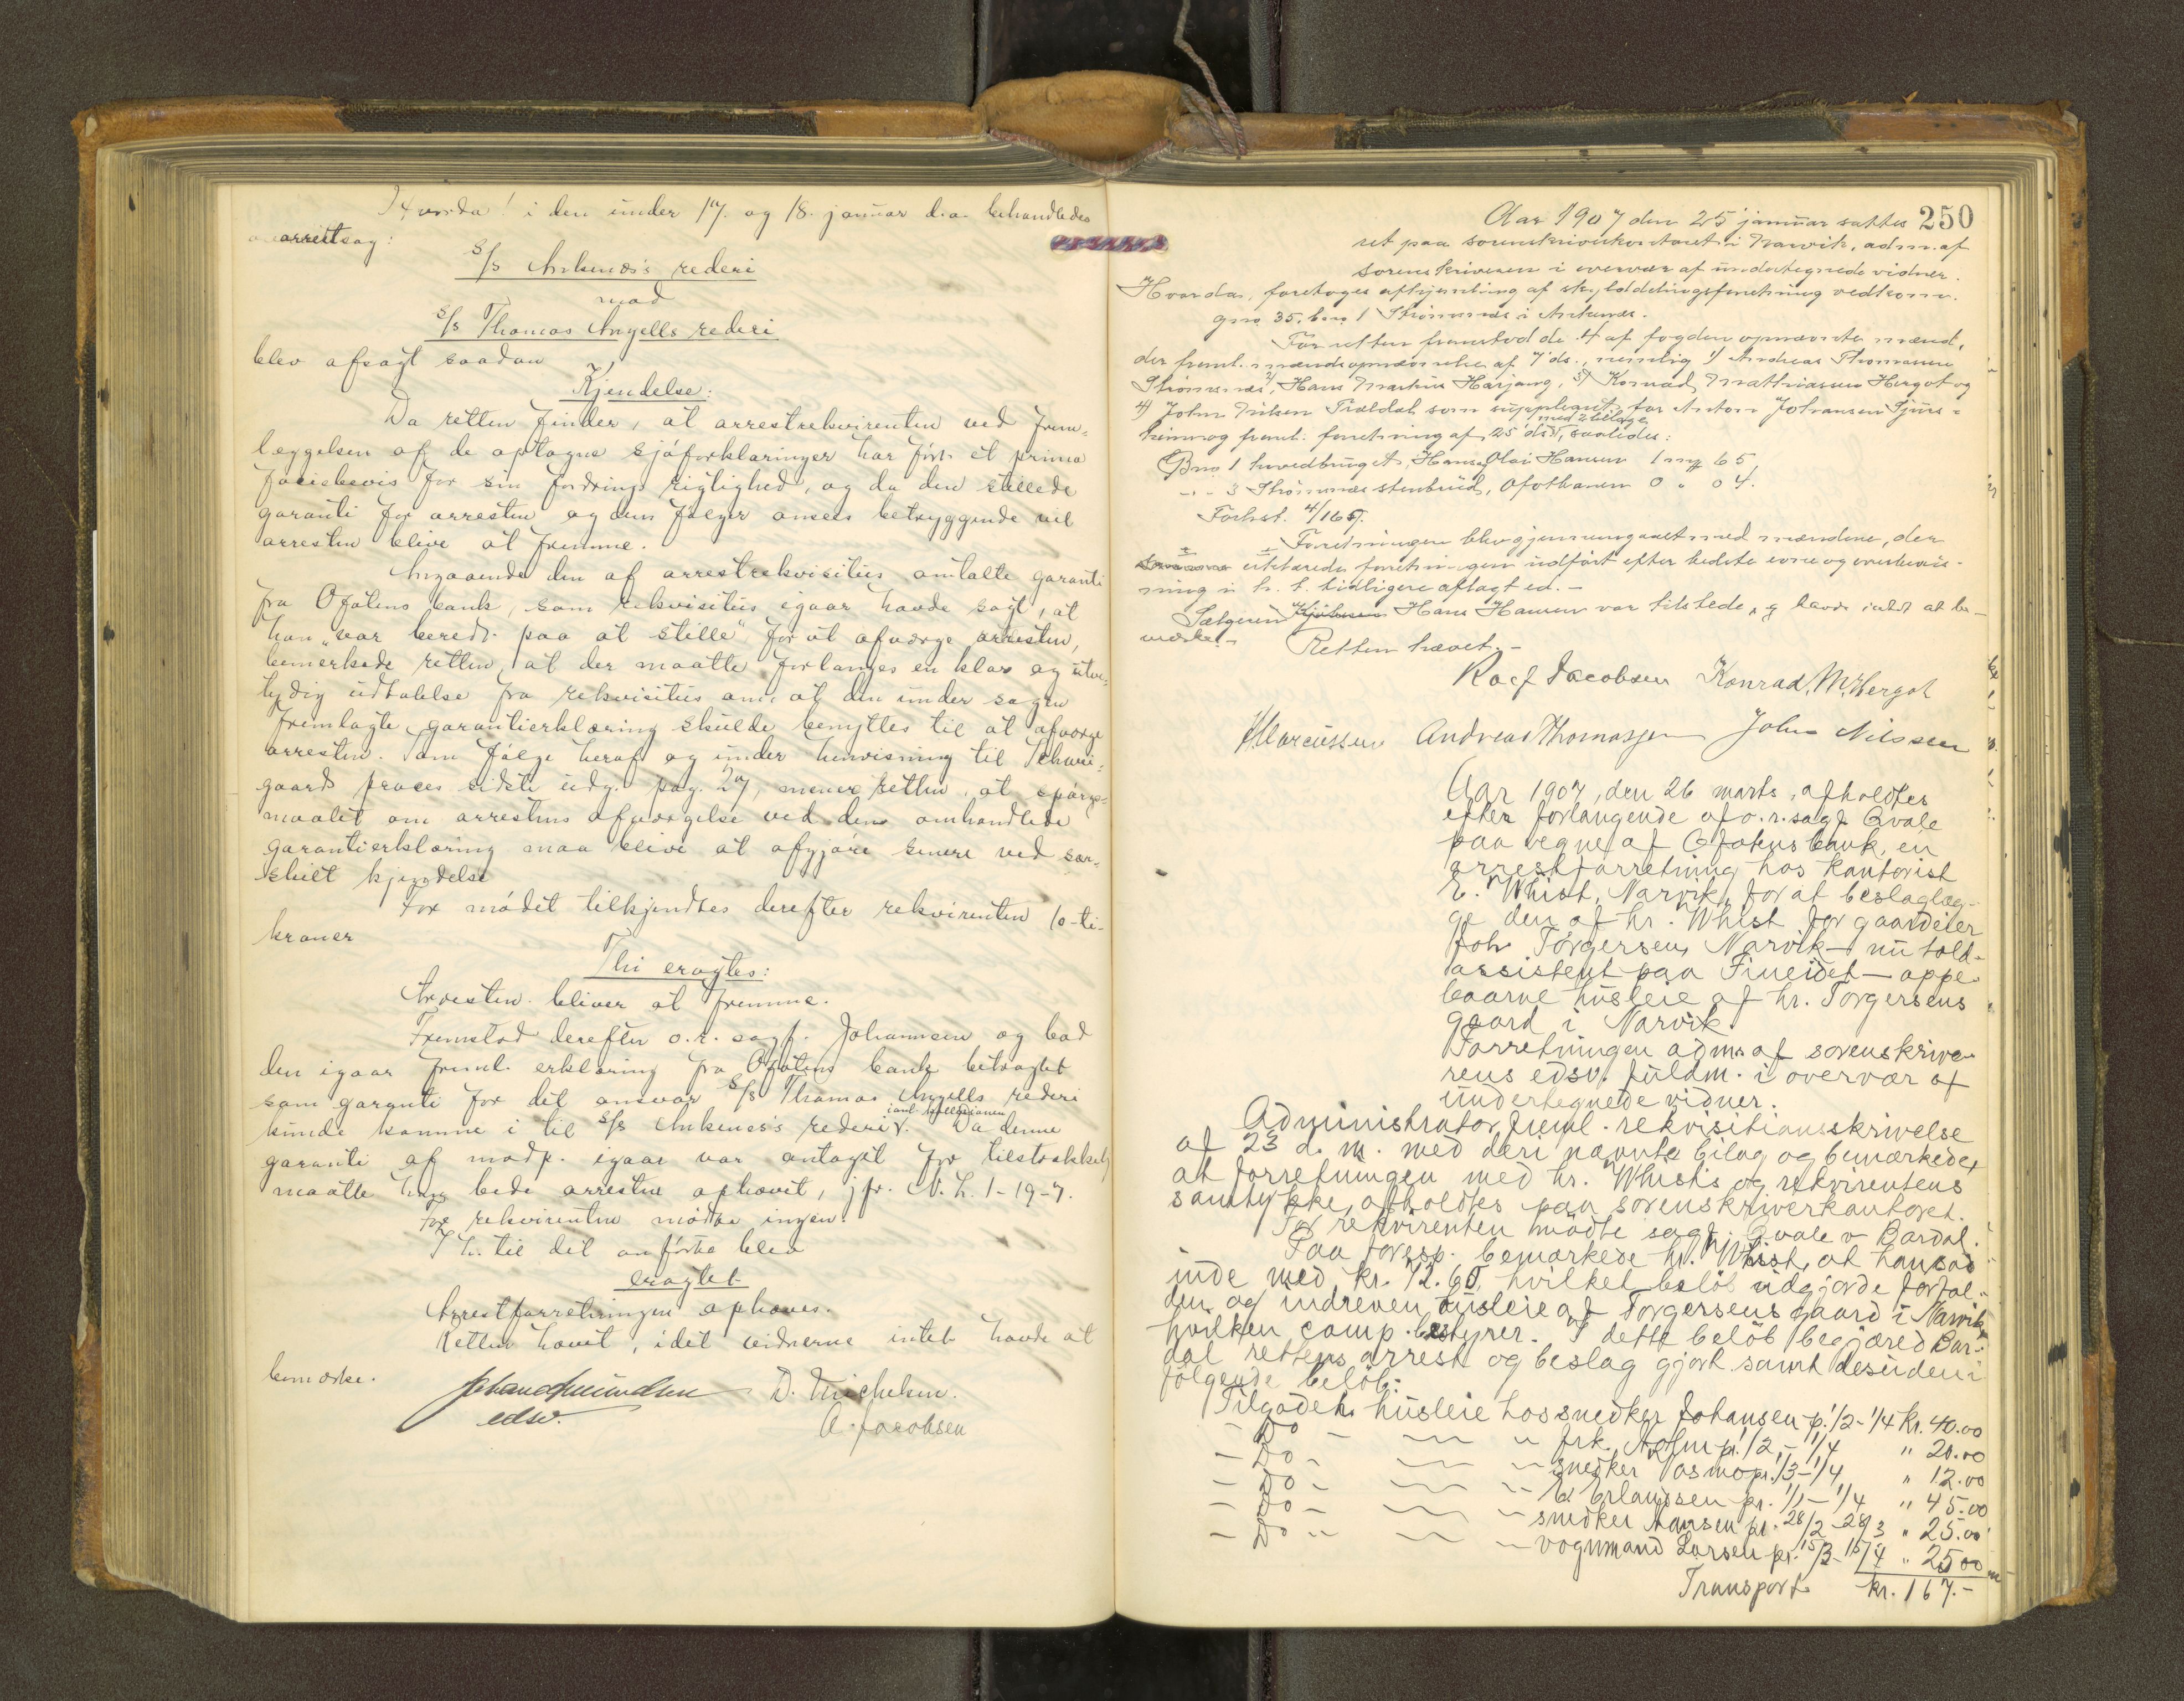 Hvorda! i den under 17. og 18. januar d.a. behandledes
arrestsag:
S/s Ankenæs's rederi
mod
S/s Thomas Angells rederi
blev afsagt saadan
Kjendelse:
Da retten finder, at arrestrekvirenten ved frem-
læggelsen af de optagne sjøforklaringer har ført et prima
faciebevis for sin fordrings rigtighed, og da den stillede
garanti for arresten og dens følger ansees betryggende vil
arresten blive at fremme.
Angaaende den af arrestrekvisitus omtalte garanti
fra Ofotens bank, som rekvisitus igaar havde sagt, at
han "var beredt paa at stille" for at afværge arresten,
bemerkede retten, at der maatte forlanges en klar og utve-
tydig udtalelse fra rekvisitus om, at den under sagen
fremlagte garantierklæring skulde benyttes til at afværge
arresten. Som følge heraf og under henvisning til Schwei-
gaards proces sidste udg. pag. 27, mener retten, at spørgs-
maalet om arrestens afværgelse ved den omhandlede
garantierklæring maa blive at afgjøre senere ved sær-
skilt kjendelse
For mødet tilkjendtes derefter rekvirenten 10-ti-
kroner
Thi eragtes:
Arresten bliver at fremme.
Fremstod derefter o.r. sagf. Johannsen og bad
den igaar freml. erklæring fra Ofotens bank betragtet
som garanti for det ansvar S/s Thomas Angells rederi
kunde komme i til S/s Ankenæs's rederi i anl. kollisionen. Da denne
garanti af modp. igaar var antaget for tilstrækkelig
maatte han bede arresten ophævet, jfr. N. L. 1-19-7.
For rekvirenten mødte ingen.
I h. til det anførte blev
eragtet
Arrestforretningen ophæves.
Retten hævet, idet vidnerne intet havde at
bemærke.
edsv.
D. Michelsen.
A. Jacobsen
250
Aar 1907 den 25 januar sattes
ret paa sorenskriverkontoret i Narvik, adm. af
sorenskriveren i overvær af undertegnede vidner.
Hvorda, foretoges afhjemling af skylddelingsforretning vedkom.
gno 35, bno 1 Strømsnes i Ankenes.
For retten fremstod de 4 af fogden opnævnte mænd,
der freml. mandsopnævnelse af 7 ds., nemlig 1) Andreas Thomassen
Strømsnes, 2) Hans Markus Harjang, 3) Konrad Mathiassen Hergot og
4) John Nilsen Trældal som suppleant for Anton Johansen
og freml. forretning af 25 ds med 2 bilage, saaledes:
Bno 1 hovedbruget, Hans Olai Hansen 1 mrk 65
- " - 3 Strømsnes stenbrud, Ofotbanen 0 " 04.
Forhst. 4/165.
Forretningen blev gjennemgaaet med mændene, der
erklærede forretningen udført efter bedste evne og overbevis-
ning i h. t. tidligere aflagt ed. -
Sælgeren Hans Hansen var tilstede, og havde intet at be-
mærke. -
Retten hævet. -
Roef Jacobsen Konrad. M. Hergot
H Marcussen Andreas Thomassen John Nilssen
Aar 1907, den 26 marts, afholdtes
efter forlangende af o.r.sagf. Qvale
paa vegne af Ofotens bank, en
arrestforretning hos kontorist
E. Whist, Narvik, for at beslaglæg-
ge den af hr. Whist for gaardeier
Joh. Torgersen, Narvik - nu told-
assistent paa Fineidet - oppe-
baarne husleie af hr. Torgersens
gaard i Narvik.
Forretningen adm. af sorenskrive-
rens edsv. fuldm. i overvær af
undertegnede vidner.
Administrator freml. rekvisitionsskrivelse
af 23 d. m. med deri nævnte bilag og bemærkede,
at forretningen med hr. Whists og rekvirentens
samtykke afholdtes paa sorenskriverkontoret.
For rekvirenten mødte sagf. Qvale v Bardal.
Paa foresp. bemærkede hr. Whist, at han sad
inde med kr. 72.65, hvilket beløb udgjorde forfal-
den og indreven husleie af Torgersens gaard i Narvik,
hvilken comp. bestyrer. I dette beløb begjæred Bar-
dal rettens arrest og beslag gjort samt desuden i
følgende beløb:
Tilgodeh. husleie hos snedker Johansen pr. 1/2 - 1/4 kr. 40.00
- Do - " frk. Holm pr. 1/2 - 1/4 " 20.00
- Do - " snedker Vasmo pr. 1/3 - 1/4 " 12.00
- Do - " E. Erlandsen pr. 1/1 - 1/4 " 45.00
- Do - " snedker Hansen pr. 28/2 - 28/3 " 25.00
- Do - " vognmand Larsen pr. 15/3 - 15/4 " 25.00
Transport kr. 167.-